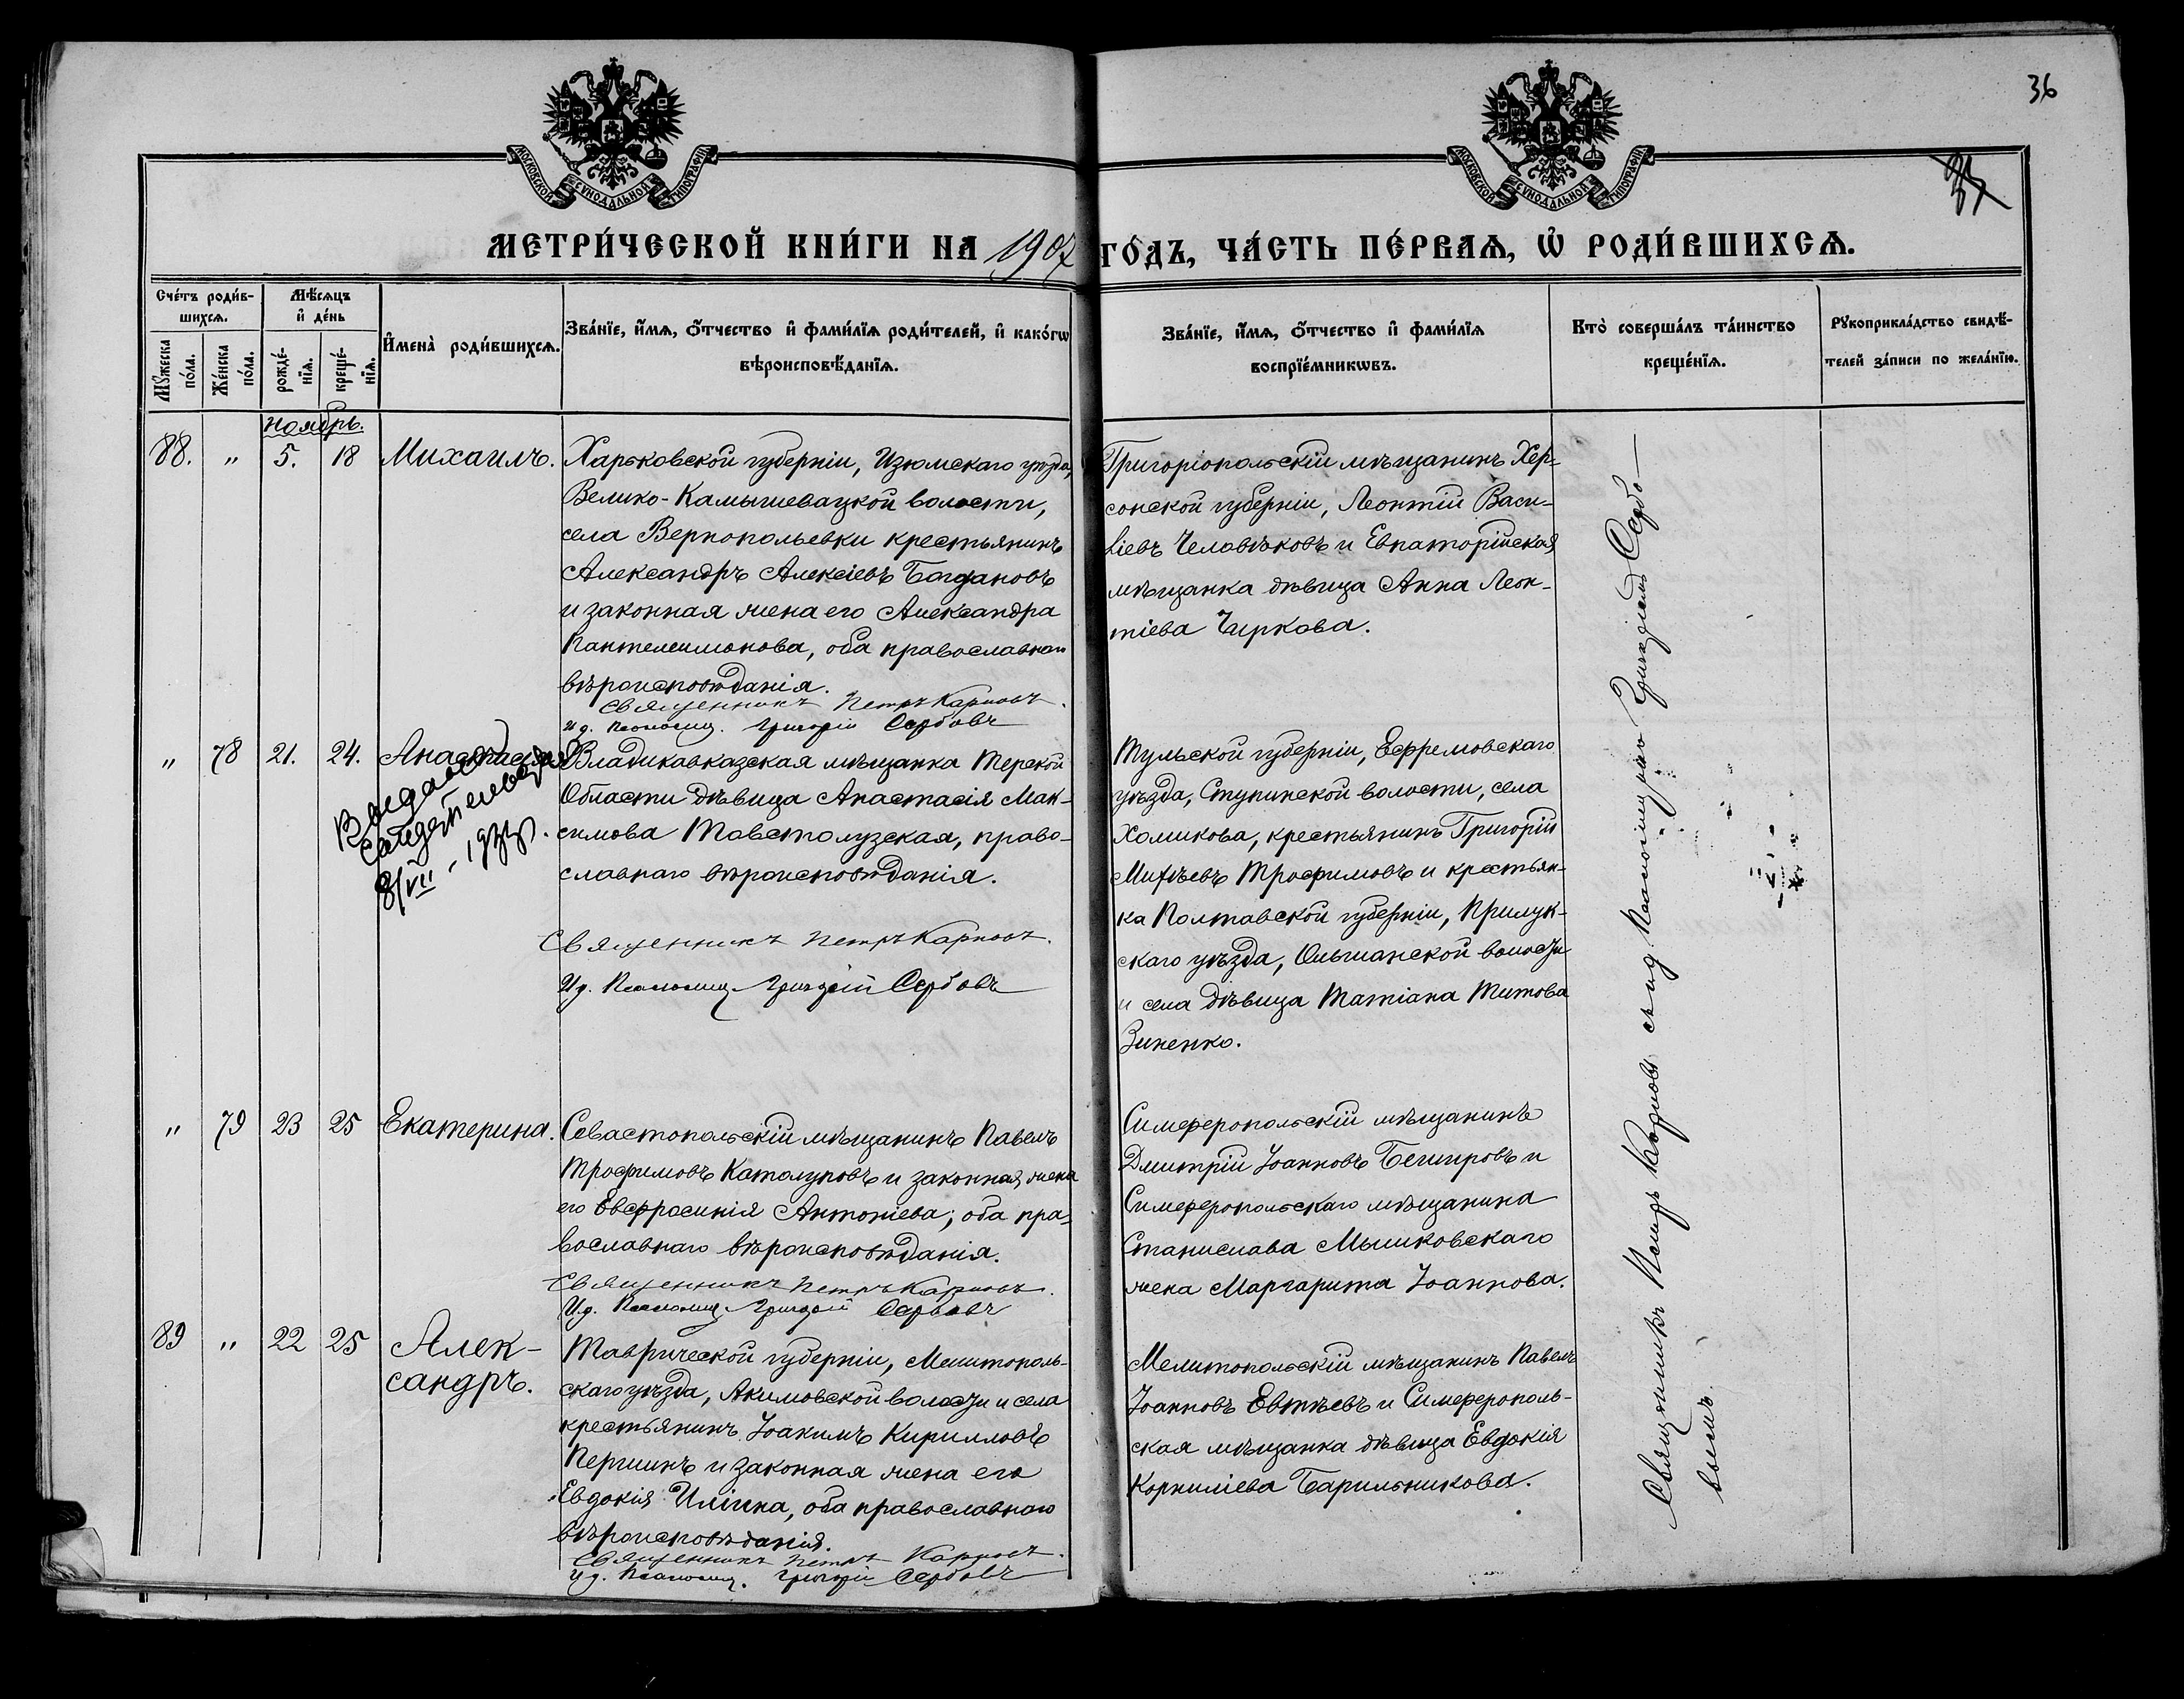 36
МОСКОВСКОЙ СѴНОДАЛЬНОЙ ТИПОГРАФІИ
МОСКОВСКОЙ СѴНОДАЛЬНОЙ ТИПОГРАФІИ
МЕТРИ́ЧЕСКОЙ КНИ́ГИ НА 1907 ГО́ДЪ, ЧА́СТЬ ПЕ́РВАѦ, Ѡ РОДИ́ВШИХСѦ.
Сче́тъ роди́в-
шихсѧ.
Мꙋ́жеска по́ла.
Же́нска по́ла.
Мѣ́сѧцъ
и҆ де́нь
рожде́-
нїѧ.
креще́-
нїѧ.
И҆мена̀ роди́вшихсѧ.
Зва́нїе, и҆́мѧ, ѻ҆́тчество и҆ фами́лїѧ роди́телей, и҆ како́гѡ
вѣроисповѣ́данїѧ.
Зва́нїе, и҆́мѧ, ѻ҆́тчество и҆ фами́лїѧ
воспрїе́мникѡвъ.
Кто̀ соверша́лъ та́инство
креще́нїѧ.
Рꙋкоприкла́дство свидѣ́-
телей за́писи по жела́нїю.
Ноябрь.
88. " 5. 18 Михаилъ.
Харьковской губерніи, Изюмскаго уѣзда,
Велико-Камышевацкой волости,
села Вернопольевки крестьянинъ
Александръ Алексіевъ Богдановъ
и законная жена его Александра
Пантелеимонова, оба православнаго
вѣроисповѣданія.
Священникъ Петръ Карповъ.
Ид. Псаломщ. Григорій Сербовъ
Григоріопольскій мѣщанинъ Хер-
сонской губерніи, Леонтій Васи-
ліевъ Человѣковъ и Евпаторійская
мѣщанка дѣвица Анна Леон-
тіева Чиркова.
" 78 21. 24. Анастасія
Выдано
свидѣтельство
8/VII - 1933.
Владикавказская мѣщанка Терской
Области дѣвица Анастасія Мак-
симова Товстолузская, право-
славнаго вѣроисповѣданія.
Священникъ Петръ Карповъ.
Ид. Псаломщ. Григорій Сербовъ
Тульской губерніи, Ефремовскаго
уѣзда, Ступинской волости, села
Хомикова, крестьянинъ Григорій
Михѣевъ Трофимовъ и крестьян-
ка Полтавской губерніи, Прилук-
скаго уѣзда, Ольшанской волости
и села дѣвица Татіана Титова
Зиненко.
" 79 23 25 Екатерина.
Севастопольскій мѣщанинъ Павелъ
Трофимовъ Католуповъ и законная жена
его Евфросинія Антоніева; оба пра-
вославнаго вѣроисповѣданія.
Священникъ Петръ Карповъ.
Ид. Псаломщ. Григорій Сербовъ
Симферопольскій мѣщанинъ
Дмитрій Іоанновъ Бешировъ и
Симферопольскаго мѣщанина
Станислава Мышковскаго
жена Маргарита Іоаннова.
89 " 22 25 Алек-
сандръ.
Таврической губерніи, Мелитополь-
скаго уѣзда, Акимовской волости и села
крестьянинъ Іоакимъ Кирилловъ
Першинъ и законная жена его
Евдокія Иліина, оба православнаго
вѣроисповѣданія.
Священникъ Петръ Карповъ.
Ид. Псаломщ. Григорій Сербовъ
Мелитопольскій мѣщанинъ Павелъ
Іоанновъ Евтѣевъ и Симферополь-
ская мѣщанка дѣвица Евдокія
Корниліева Барильникова.
Священникъ Петръ Карповъ съ ид. Псаломщикомъ Григоріемъ Сербо-
вымъ.